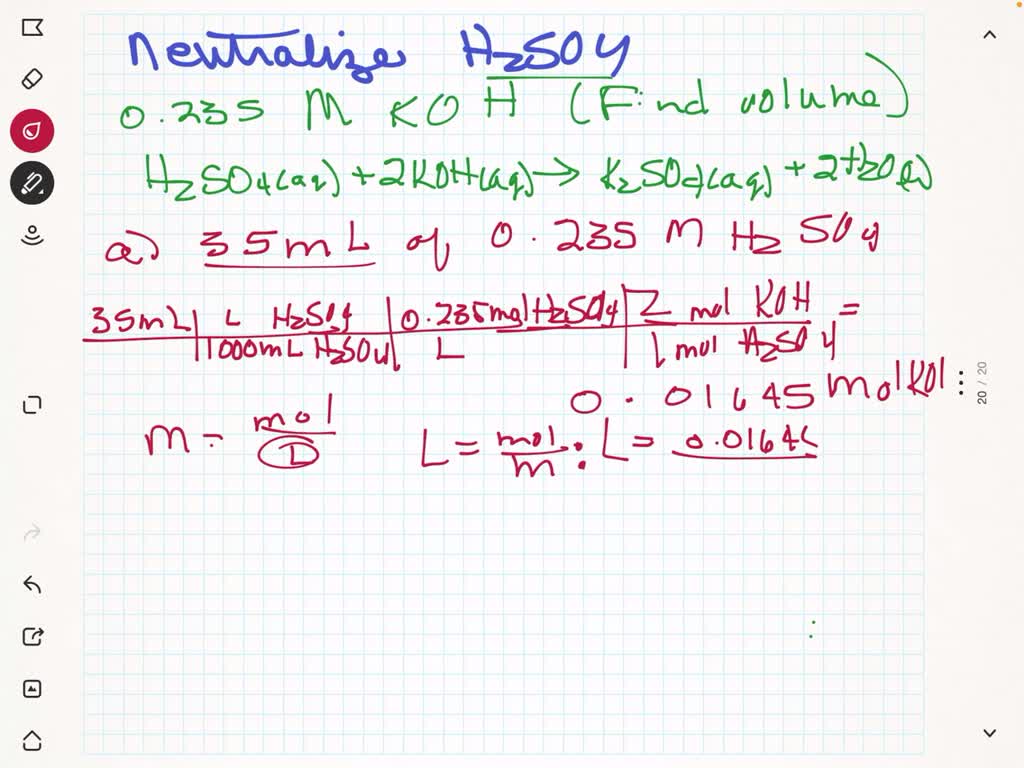 Neutralize H2SO4
0.235 M KOH (Find volume)
H2SO4(aq) + 2KOH(aq) → K2SO4(aq) + 2H2O(l)
a) 35mL of 0.235 M H2SO4
35mL | L H2SO4 | 0.235mol H2SO4 | 2 mol KOH =
1000mL H2SO4 | L | 1 mol H2SO4
0.01645 mol KOH
M = mol / L L = mol / M : L = 0.0164
20 / 20